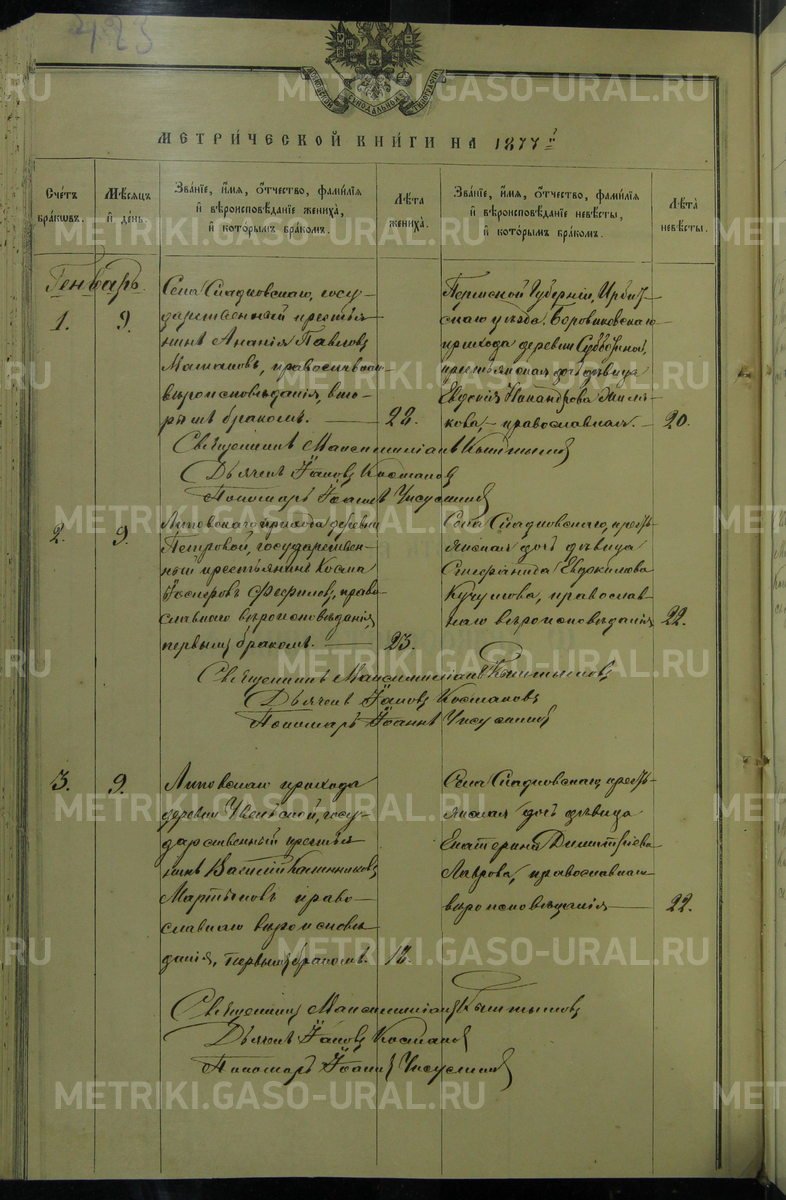 МЕТРИ́ЧЕСКОЙ КНИ́ГИ НА 1877 г.
Сче́тъ бра́кωвъ.
Мѣ́сяцъ и҆ де́нь.
Зва́нїе, и҆́мя, ѻ҆́тчество, фами́лїя и҆ вѣроисповѣ́данїе жениха̀, и҆ кото́рымъ бра́комъ.
Лѣ́та жениха̀.
Зва́нїе, и҆́мя, ѻ҆́тчество, фами́лїя и҆ вѣроисповѣ́данїе невѣ́сты, и҆ кото́рымъ бра́комъ.
Лѣ́та невѣ́сты.
Генварь.
1.
9.
Села Сладковскаго, госу-
дарственный крестья-
нинъ Ананія Павловъ
православнаго
вѣроисповѣданія, вто-
рымъ бракомъ.
28.
Пермской Губерніи, Ирбит-
скаго уѣзда
прихода деревни
крестьянская дочь дѣвица
Евдокія Никандрова
православная.
20.
Священникъ Максимиліанъ
Дьячекъ Іаковъ Костаковъ
Пономарь Іоаннъ
2.
9.
Липовскаго прихода деревни
Петровой, государствен-
ный крестьянинъ Косма
право-
славнаго вѣроисповѣданія,
первымъ бракомъ.
23.
Села Сладковскаго, кресть-
янская дочь дѣвица
Стефанида Евдокимова
православ-
наго вѣроисповѣданія
22.
Священникъ Максимиліанъ
Дьячекъ Іаковъ Костаковъ
Пономарь Іоаннъ
3.
9.
Липовскаго прихода
деревни госу-
дарственный крестья-
нинъ Василій Калинниковъ
Мартыновъ право-
славнаго вѣроисповѣ-
данія, первымъ бракомъ.
18.
Села Сладковскаго, кресть-
янская дочь дѣвица
Екатерина Димитріева
Лаврова, православнаго
вѣроисповѣданія
22.
Священникъ Максимиліанъ
Дьячекъ Іаковъ Костаковъ
Пономарь Іоаннъ
METRIKI.GASO-URAL.RU